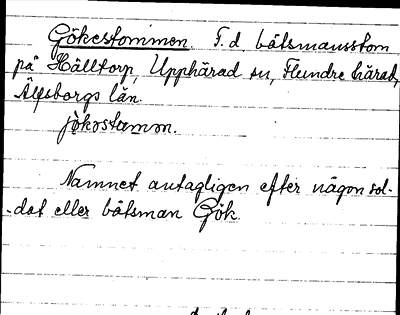 Gökestommen. F.d. båtsmansstom
på Hälltorp, Upphärad sn, Flundre härad,
Älvsborgs län.
jökostamm.
Namnet antagligen efter någon sol-
-dat eller båtsman Gök.